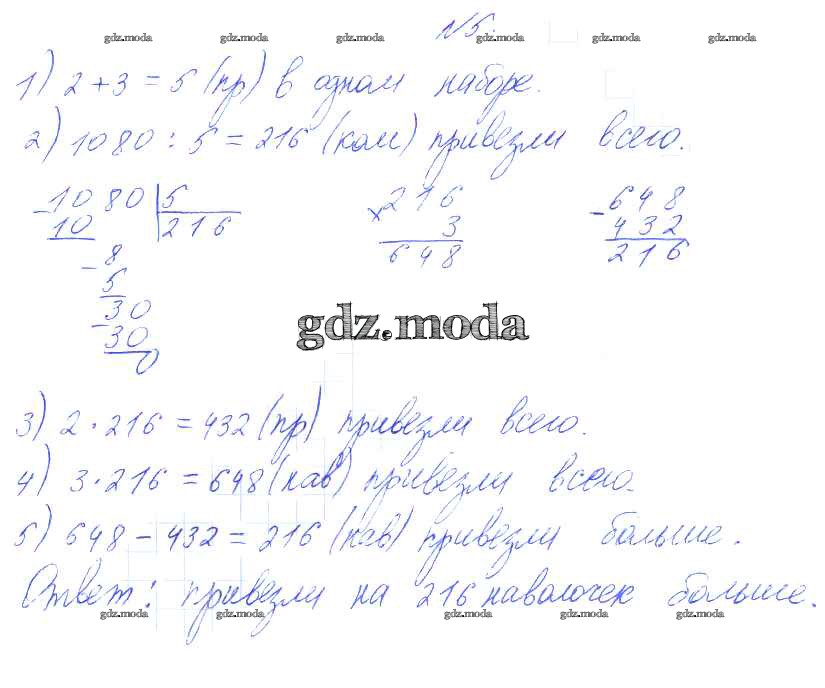 gdz.moda gdz.moda gdz.moda gdz.moda
№5.
1) 2 + 3 = 5 (пр) в одном наборе.
2) 1080 : 5 = 216 (ком) привезли всего.
1080 5 216 648
10 216 3 432
8 648 216
5
30
30
0
gdz.moda
3) 2 · 216 = 432 (пр) привезли всего.
4) 3 · 216 = 648 (нав) привезли всего.
5) 648 - 432 = 216 (нав) привезли больше.
Ответ: привезли на 216 наволочек больше.
gdz.moda gdz.moda gdz.moda gdz.moda